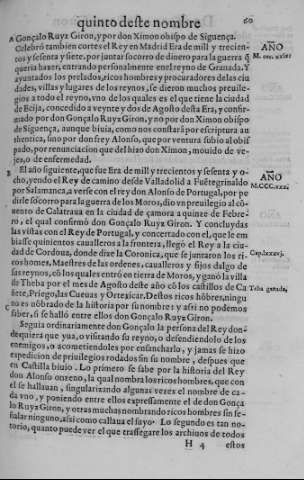 quinto deste nombre 60
A Gonçalo Ruyz Giron, y por don Ximon obispo de Siguença.
Celebró tambien cortes el Rey en Madrid Era de mill y trecien-
tos y sesenta y siete, por juntar socorro de dinero para la guerra q̃
queria hazer, entrando personalmente en el reyno de Granada. Y
ayuntados los prelados, ricos hombres y procuradores de las ciu
dades, villas y lugares de los reynos, se dieron muchos preuile-
gios a todo el reyno, vno de los quales es el que tiene la ciudad
de Ecija, concedido a veynte y dos de Agosto desta Era, y confir-
mado por don Gonçalo Ruyz Giron, y no por don Ximon obispo
de Siguença, aunque biuia, como nos constará por escriptura au
thentica, sino por don frey Alonso, que por ventura subio al obis
pado, por renunciacion que del hizo don Ximon, mouido de ve-
jez, o de enfermedad.
AÑO
AÑO
B El año siguiente, que fue Era de mill y trecientos y sesenta y o-
cho, yendo el Rey de camino desde Valladolid a Fuẽtegrinaldo
por Salamanca, a verse con el rey don Alonso de Portugal, por pe
dirle socorro para la guerra de los Moros, dio vn preuilegio al cõ-
uento de Calatraua en la ciudad de çamora a quinze de Febre-
ro, el qual confirmó don Gonçalo Ruyz Giron. Y concluydas
las vistas con el Rey de Portugal, y concertado con el, que le em
biasse quinientos caualleros a la frontera, llegó el Rey a la ciu-
dad de Cordoua, donde dize la Coronica, que se juntaron los ri-
cos homes, Maestres de las ordenes, caualleros y fijos dalgo de
sus reynos, cõ los quales entró en tierra de Moros, y ganó la villa
de Theba por el mes de Agosto deste año cõ los castillos de Ca
ñete, Priego, las Cueuas y Ortexicar. Destos ricos hõbres, ningu
no es nõbrado de la historia por su nombre: y assi no podemos
saber, si se halló entre ellos don Gonçalo Ruyz Giron.
Teba ganada,
C Seguia ordinariamente don Gonçalo la persona del Rey don-
dequiera que yua, o visitando su reyno, o defendiendolo de los
enemigos, o acometiendoles por ensancharlo, y jamas se hizo
expedicion de priuilegios rodados sin su nombre, despues que
en Castilla biuio. Lo primero se sabe por la historia del Rey
don Alonso onzeno, la qual nombra los ricos hombres, que con
el se hallauan, singularizando algunas vezes el nombre de ca-
da vno, y poniendo entre ellos expressamente el de don Gonça
lo Ruyz Giron, y otras muchas nombrando ricos hombres sin se-
ñalar ninguno, assi como callaua el suyo. Lo segundo es tan no-
torio, quanto puede ver el que trassegare los archiuos de todos
H 4 estos